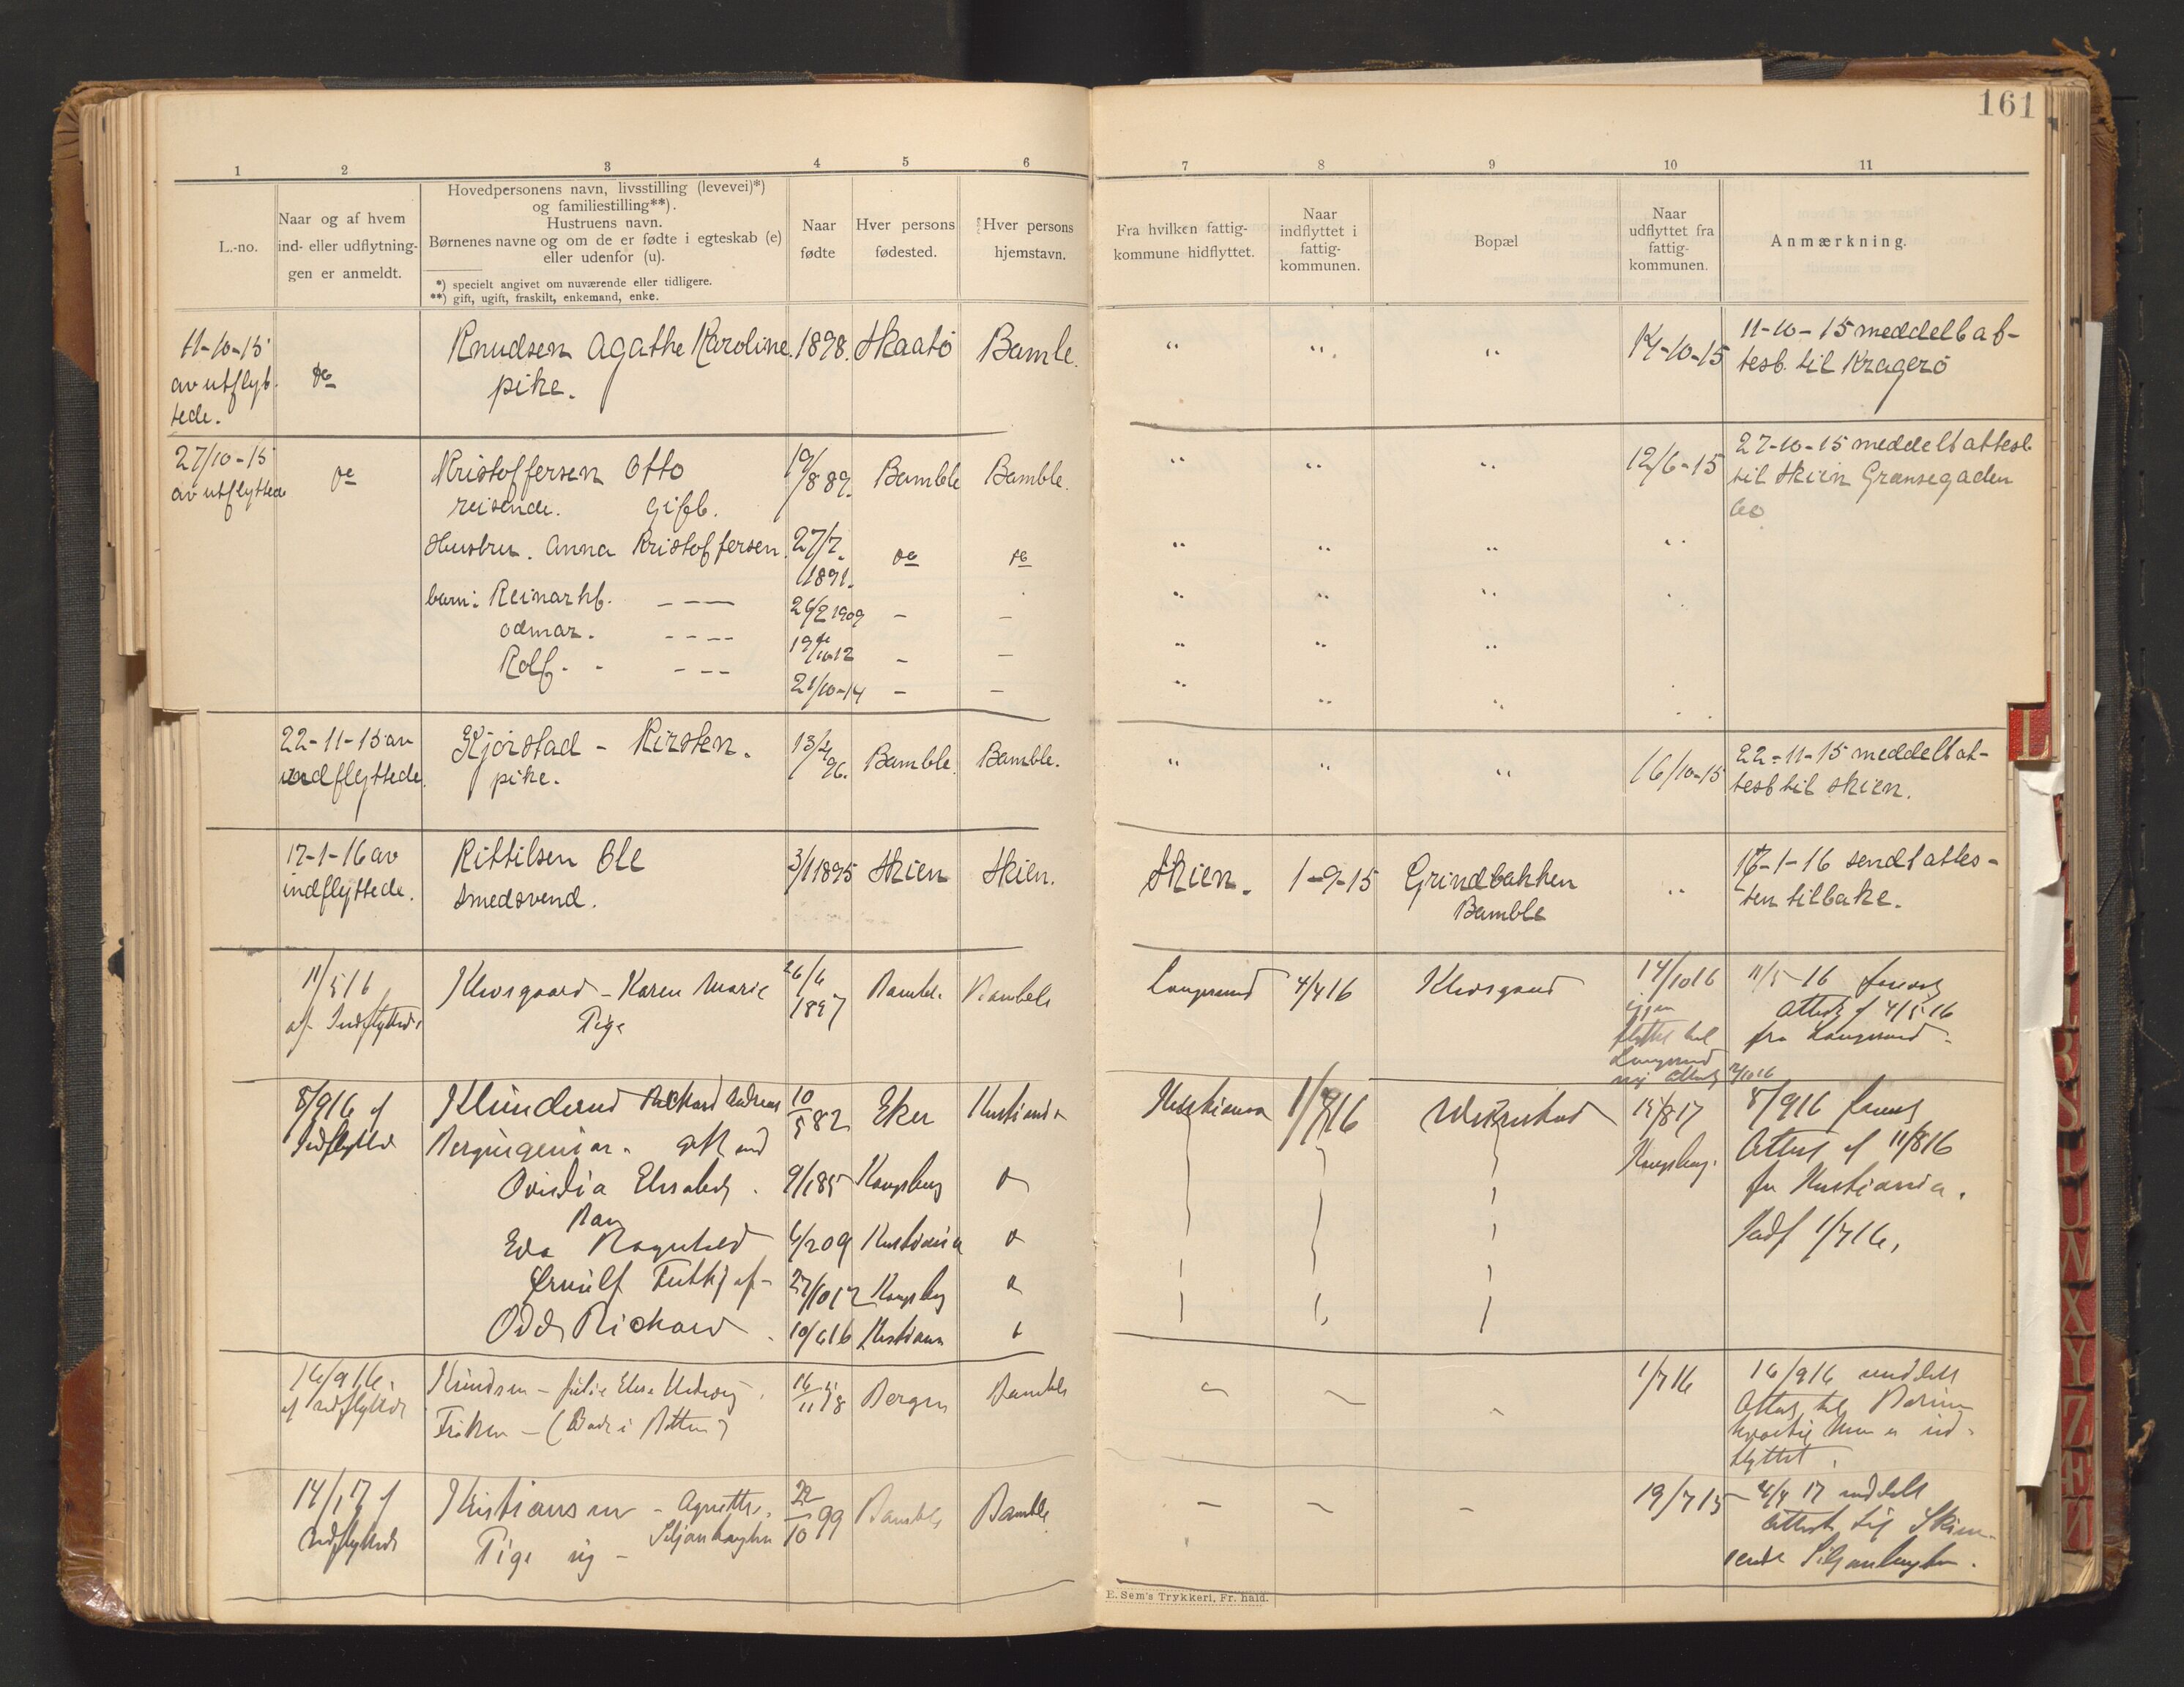 161
1 2 3 4 5 6 7 8 9 10 11
L.-no.
Naar og af hvem
ind- eller udflytnin-
gen er anmeldt.
Hovedpersonens navn, livsstilling (levevei)*)
og familiestilling**).
Hustruens navn.
Børnenes navne og om de er fødte i egteskab (e)
eller udenfor (u).
*) specielt angivet om nuværende eller tidligere.
**) gift, ugift, fraskilt, enkemand, enke.
Naar
fødte
Hver persons
fødested.
Hver persons
hjemstavn.
Fra hvilken fattig-
kommune hidflyttet.
Naar
indflyttet i
fattig-
kommunen.
Bopæl
Naar
udflyttet fra
fattig-
kommunen.
Anmærkning.
11-10-15 Knudsen Agathe Karoline. 1898. Skaatö Bamle. " " " 14-10-15 11-10-15 meddelt at-
av utflyt- do pike. test. til Kragerö
tede.
27/10-15 do Kristoffersen Otto 19/8 89. Bamble Bamble. " " " 12/6-15 27-10-15 meddelt attest
av utflyttede reisende. Gift. til Skien Grænsegaden
60
Hustru. Anna Kristoffersen. 27/7 1891. do do " " " "
barn: Reinart 26/2 1909 — — " " "
Odmar. 19/10-12 — — " " "
Rolf. 21/10-14 — — " " "
22-11-15 av Kjörstad - Kirsten. 13/4 96. Bamble. Bamble. " " " 16/10-15 22-11-15 meddelt at-
udflyttede. pike. test til Skien.
17-1-16 av Kittilsen Ole 3/1 1895 Skien Skien. Skien. 1-9-15 Grindbakken " 17-1-16 sendt attes-
indflyttede. Smedsvend. Bamble ten tilbake.
11/5 16 Klovgaard - Karen Marie 26/6 1897 Bamble Bamble Langesund 4/4 16 Klovgaard 14/10 16 11/5-16
af Indflyttede Pige igjen Attest af 4/5 16
flyttet til fra Langesund.
Langesund
Attest 2/10 16
8/9 16 af Richard Andreas 10/5 82 Eker Kristiania Kristiania 1/7 16 15/8 17 8/9 16
Indflyttede Bergingeniør. gift med Kongsberg. Attest af 11/8 16
Elisabeth. 9/1 85 Kongsberg do fra Kristiania.
Eva Ragnhild 6/2 09 Kristiania do Indf 1/7 16.
27/10 12 Kongsberg do
Odd Richard. 10/6 16 Kristiania do
16/9 16. Knudsen - Julie Bergen Bamble 1/7 16 16/9 16 meddelt
af udflyttede Frøken - Attest til
hvortil hun er ud-
flyttet.
14/17 af Kristiansen - Agnethe. 22/10 99 Bamble Bamble — — — 19/7 15 17 meddelt
Udflyttede Pige ug - Attest til Skien
E. Sem's Trykkeri, Fr. hald.
L